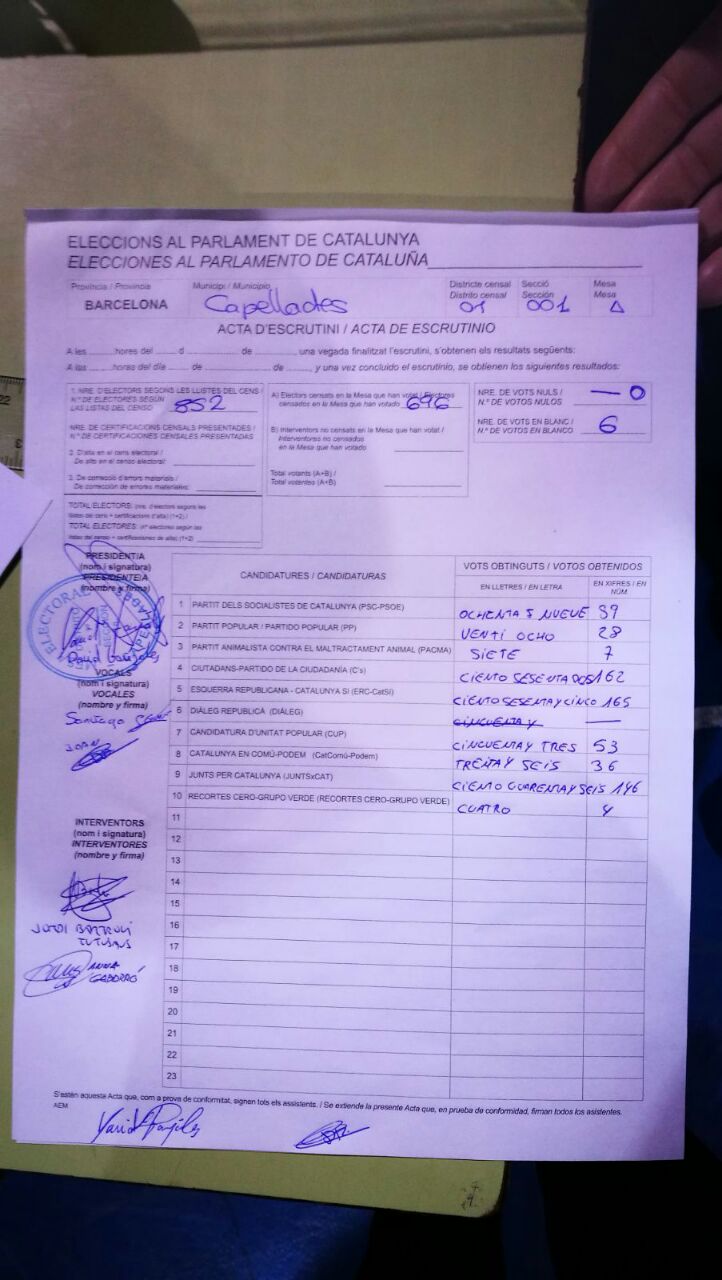 ELECCIONS AL PARLAMENT DE CATALUNYA
ELECCIONES AL PARLAMENTO DE CATALUÑA
Província / Provincia Municipi / Municipio Districte censal Secció Mesa
Distrito censal Sección Mesa
BARCELONA Capellades 01 001 A
ACTA D'ESCRUTINI / ACTA DE ESCRUTINIO
A les ........ hores del ........ d ........ de ........, una vegada finalitzat l'escrutini, s'obtenen els resultats següents:
A las ........ horas del día ........ de ........ de ........, y una vez concluido el escrutinio, se obtienen los siguientes resultados:
1. NRE. D'ELECTORS SEGONS LES LLISTES DEL CENS /
N.º DE ELECTORES SEGÚN
LAS LISTAS DEL CENSO 852
NRE. DE CERTIFICACIONS CENSALS PRESENTADES /
N.º DE CERTIFICACIONES CENSALES PRESENTADAS
2. D'alta en el cens electoral /
De alta en el censo electoral:
3. De correcció d'errors materials /
De corrección de errores materiales:
TOTAL ELECTORS: (nre. d'electors segons les
llistes del cens + certificacions d'alta) (1+2) /
TOTAL ELECTORES: (nº electores según las
listas del censo + certificaciones de alta) (1+2)
A) Electors censats en la Mesa que han votat / Electores
censados en la Mesa que han votado 696
B) Interventors no censats en la Mesa que han votat /
Interventores no censados
en la Mesa que han votado
Total votants (A+B) /
Total votantes (A+B)
NRE. DE VOTS NULS /
N.º DE VOTOS NULOS — 0
NRE. DE VOTS EN BLANC /
N.º DE VOTOS EN BLANCO 6
PRESIDENT/A
(nom i signatura)
PRESIDENTE/A
(nombre y firma)
ELECTORAL
VOCALS
(nom i signatura)
VOCALES
(nombre y firma)
Santiago
JOAN
INTERVENTORS
(nom i signatura)
INTERVENTORES
(nombre y firma)
JORDI BARTROLÍ
TUTUSAUS
ANNA
GABARRÓ
CANDIDATURES / CANDIDATURAS VOTS OBTINGUTS / VOTOS OBTENIDOS
EN LLETRES / EN LETRA EN XIFRES / EN NÚM.
1 PARTIT DELS SOCIALISTES DE CATALUNYA (PSC-PSOE) OCHENTA Y NUEVE 89
2 PARTIT POPULAR / PARTIDO POPULAR (PP) VENTI OCHO 28
3 PARTIT ANIMALISTA CONTRA EL MALTRACTAMENT ANIMAL (PACMA) SIETE 7
4 CIUTADANS-PARTIDO DE LA CIUDADANÍA (C's) CIENTO SESENTA DOS 162
5 ESQUERRA REPUBLICANA - CATALUNYA SÍ (ERC-CatSí) CIENTO SESENTAY CINCO 165
6 DIÀLEG REPUBLICÀ (DIÀLEG) CINCUENTA Y —
7 CANDIDATURA D'UNITAT POPULAR (CUP) CINCUENTAY TRES 53
8 CATALUNYA EN COMÚ-PODEM (CatComú-Podem) TREITAY SEIS 36
9 JUNTS PER CATALUNYA (JUNTSxCAT) CIENTO CUARENTAY SEIS 146
10 RECORTES CERO-GRUPO VERDE (RECORTES CERO-GRUPO VERDE) CUATRO 4
11
12
13
14
15
16
17
18
19
20
21
22
23
S'estén aquesta Acta que, com a prova de conformitat, signen tots els assistents. / Se extiende la presente Acta que, en prueba de conformidad, firman todos los asistentes.
AEM